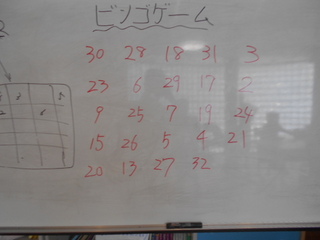 ビンゴゲーム
30 28 18 31 3
23 6 29 17 2
9 25 7 19 24
15 26 5 4 21
20 13 27 32